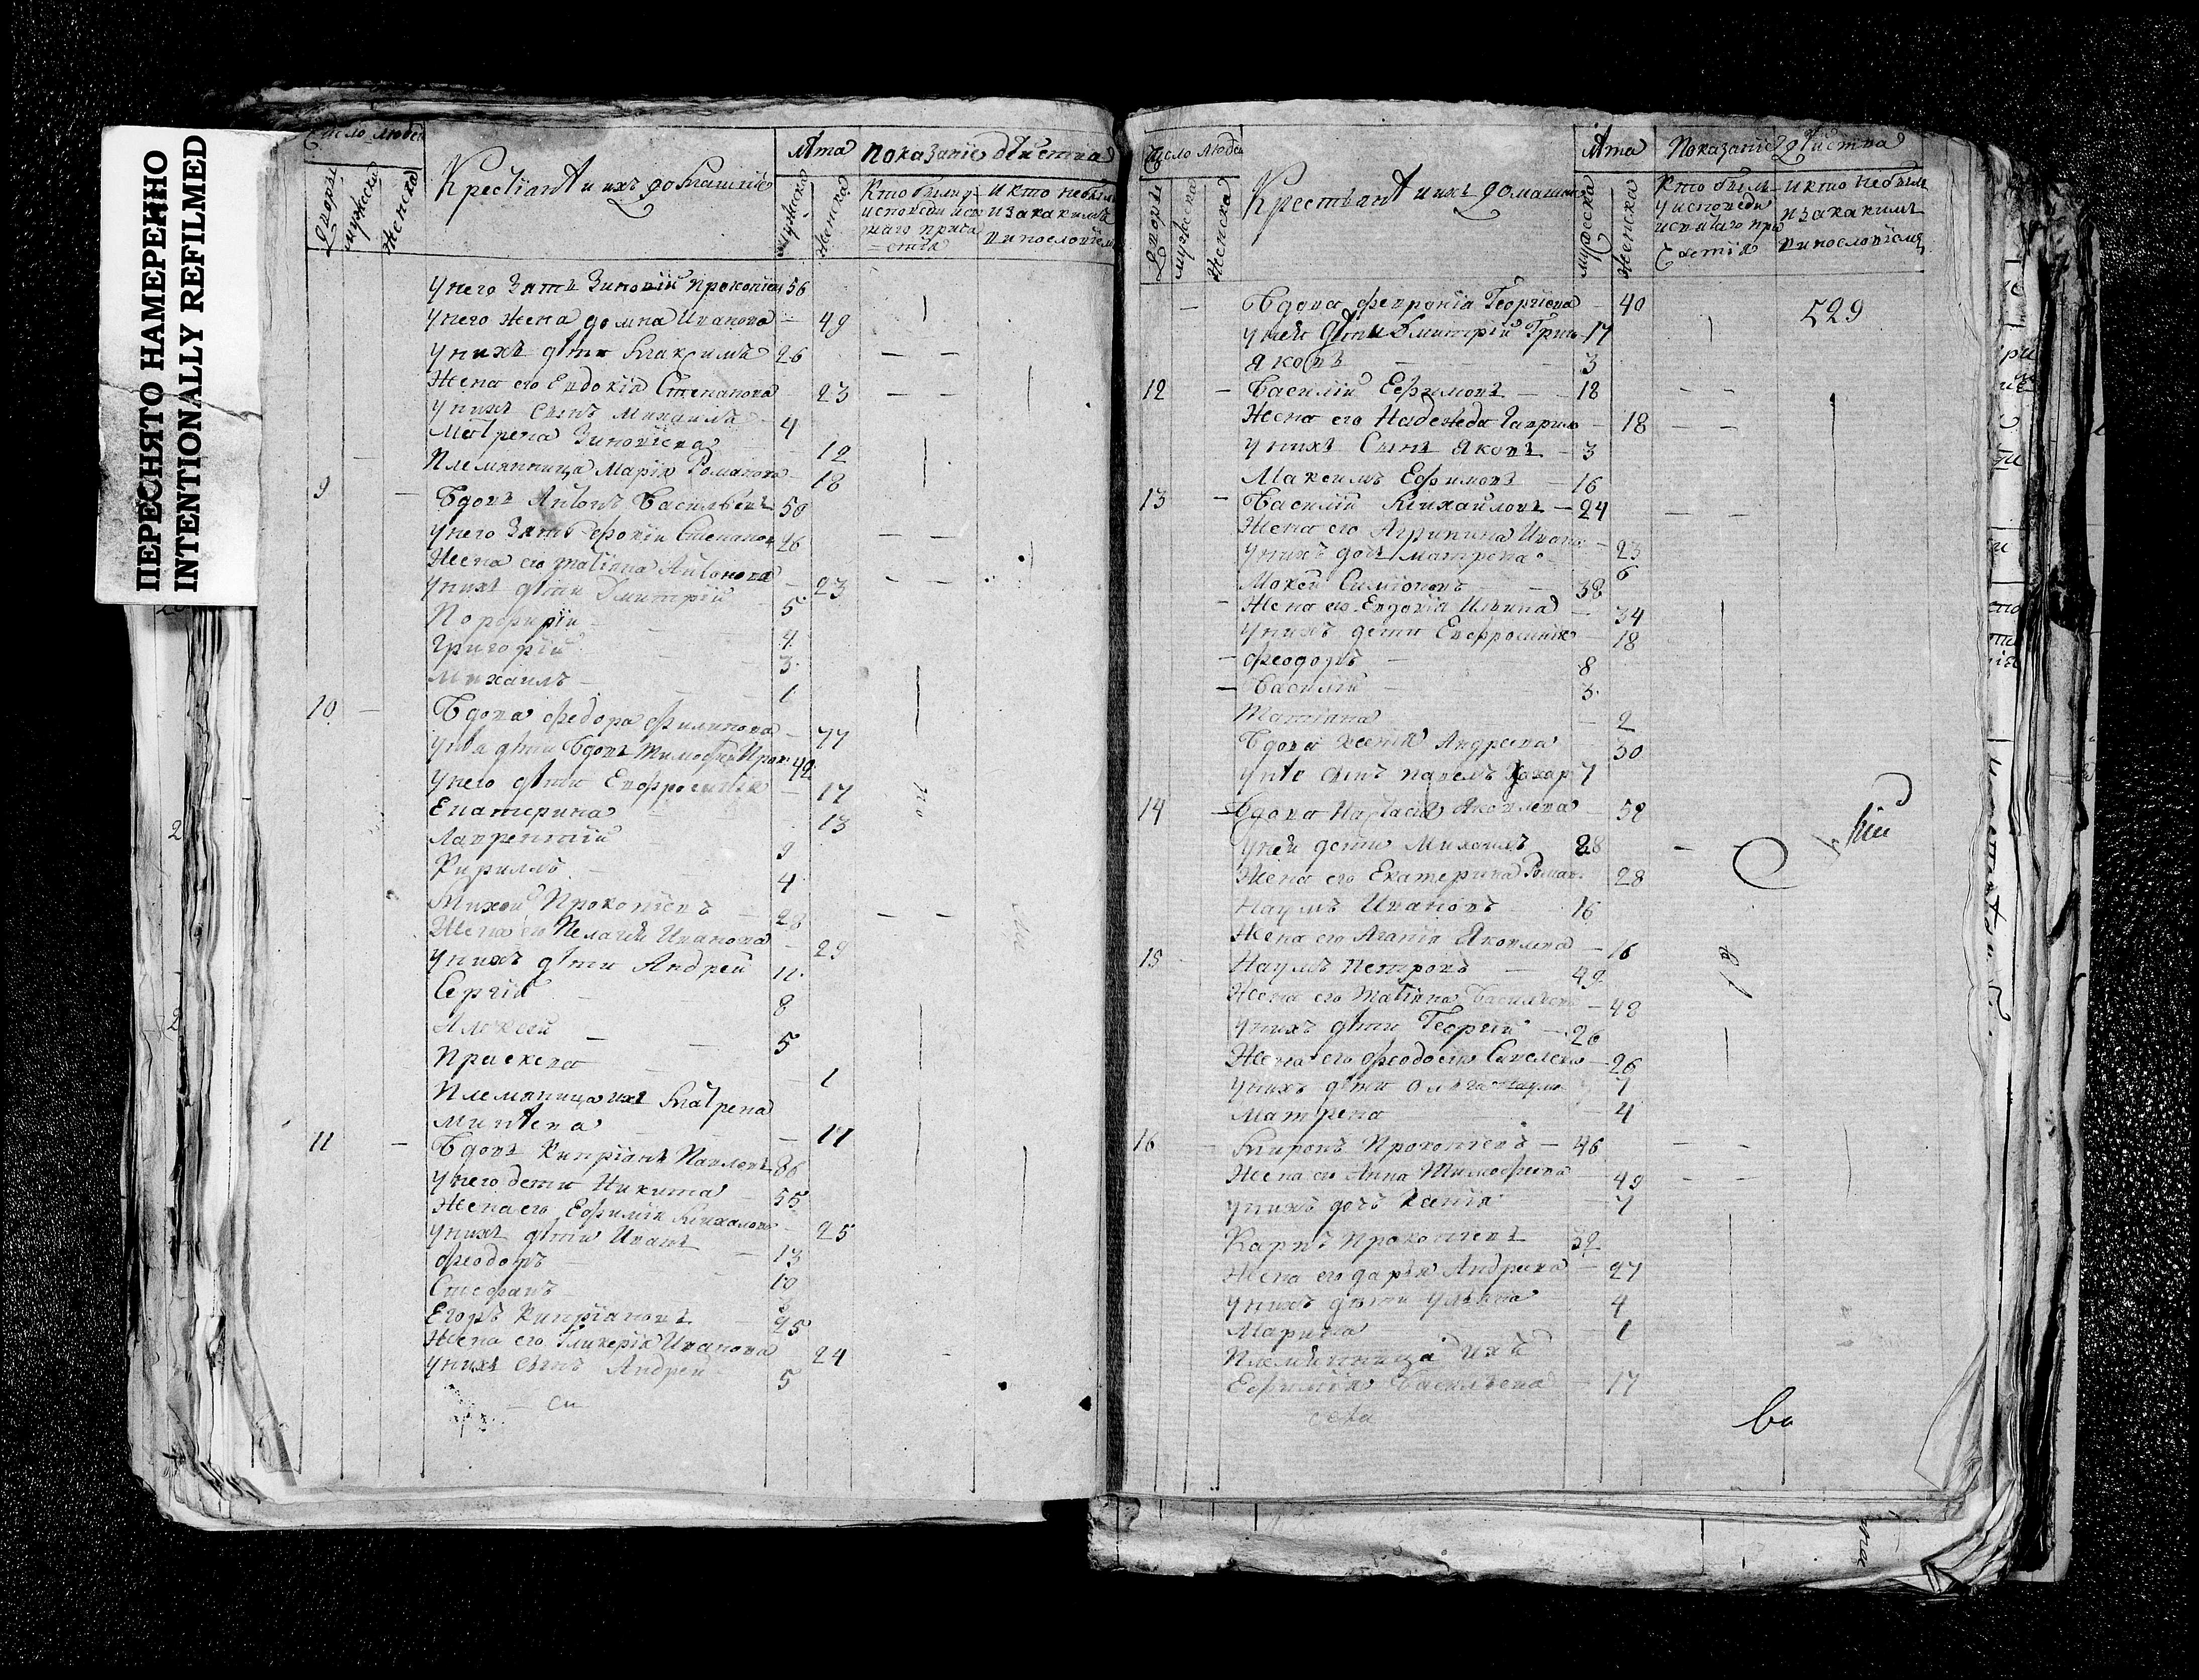 ПЕРЕСНЯТО НАМЕРЕННО
INTENTIONALLY REFILMED
Число людей
Дворы
мужска
женска
Крестіянѣ и ихъ домашніе
Лѣта
мужска
женска
Показаніе дѣиства
Кто былъ у исповеди и свя
таго прича
=стія
и кто небылъ
и за какимъ
винословіемъ
у него зять Зиновій Прокопіевъ 56
у него жена домна Иванова 49
у нихъ дѣти Максимъ 26
Жена его Евдокія Степанова 23
у нихъ сынъ Михаилъ 4
Матрена Зиновіева 12
Племянница Марія Романова 18
9 Вдовъ Антонъ Васильевъ 50
у него зять Фокій Степановъ 26
Жена его Татіяна Антонова 23
у нихъ дѣти Дмитрій 5
Порфирій 4
Григорій 3
Михаилъ 1
10 Вдова Федора Филипова 77
у нѣя дѣти Вдовъ Тимофей Прок 42
у него дѣти Евфросинія 17
Екатерина 13
Лаврентій 9
Кирилъ 4
Михей Прокопіевъ 28
Жена его Пелагея Иванова 29
у нихъ дѣти Андрей 11
Сергій 8
Алексей 5
Праскева 1
Племяница ихъ Матрена
Минѣева 17
11 Вдовъ Кипріянъ Павловъ 86
у него дети Никита 55
Жена его Ефимія Михалова 25
у нихъ дѣти Иванъ 13
Феодоръ 10
Стефанъ
Егоръ Кипріановъ 25
Жена его Гликерія Иванова 24
у нихъ сынъ Андрей 5
Число людей
Дворы
мужска
женска
Крестьянѣ и ихъ домашніе
Лѣта
мужеска
женска
Показаніе дѣиства
Кто былъ
у исповеди
и святаго при
частія
и кто небылъ
и за какимъ
винословіемъ
529
Вдова Февронія Георгіева 40
у неи дѣти Дмитрій Григ 17
Яковъ 3
12 Василій Ефимовъ 18
Жена его Надежда Гаврил 18
у нихъ Сынъ Яковъ 3
Максимъ Ефимовъ 16
13 Василій Михайловъ 24
Жена его Агрипина Ивано 23
у нихъ дочь Матрена 6
Мокей Симіоновъ 38
Жена его Евдокія Ильина 34
у нихъ дети Евфросинія 18
Феодоръ 8
Василій 3
Татіяна 2
Вдова Ксенія Андреева 30
у нѣе сынъ Павелъ Захар 7
14 Вдова Настасія Яковлева 58
у неи дети Михаилъ 28
Жена его Екатерина Роман 28
Наумъ Ивановъ 16
Жена его Агапія Яковлева 16
15 Наумъ Петровъ 49
Жена его Татіяна Васильева 48
у нихъ дѣти Георгій 26
Жена его Феодосія Савелева 26
у нихъ дѣти Ольга 7
Матрена 4
16 Миронъ Прокопіевъ 46
Жена его Анна Тимофеева 49
у нихъ дочь Ксенія 7
Карпъ Прокопіевъ 32
Жена его дарія Андреева 27
у нихъ дѣти Ульяна 4
Марина 1
Племянница ихъ
Ефимія Васильева 17
села